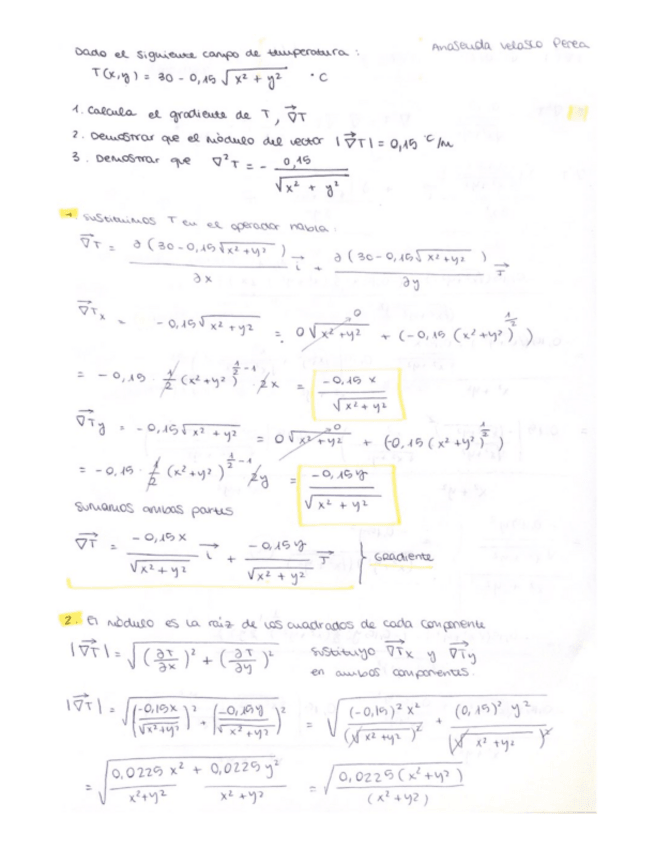 Dado el siguiente campo de temperatura :
Anaseida Velasco Perea
T(x,y) = 30 - 0,15 √(x² + y²) °C
1. Calcula el gradiente de T, ∇T
2. Demostrar que el módulo del vector |∇T| = 0,15 °C/m
3. Demostrar que ∇²T = - 0,15 / √(x² + y²)
1 Sustituimos T en el operador nabla.
∇T = ∂(30-0,15√(x²+y²)) / ∂x i + ∂(30-0,15√(x²+y²)) / ∂y j
∇Tx = -0,15√(x²+y²) = 0√(x²+y²) →0 + (-0,15 (x²+y²)^(1/2))
= -0,15 · 1/2 (x²+y²)^(1/2 -1) · 2x = -0,15 x / √(x²+y²)
∇Ty = -0,15√(x²+y²) = 0√(x²+y²) →0 + (-0,15 (x²+y²)^(1/2))
= -0,15 · 1/2 (x²+y²)^(1/2 -1) 2y = -0,15y / √(x² + y²)
sumamos ambas partes
∇T = -0,15x / √(x²+y²) i + -0,15y / √(x²+y²) j } Gradiente
2. El módulo es la raíz de los cuadrados de cada componente
|∇T| = √((∂T/∂x)² + (∂T/∂y)²) sustituyo ∇Tx y ∇Ty
en ambos componentes.
|∇T| = √((-0,15x / √(x²+y²))² + (-0,15y / √(x²+y²))²) = √((-0,15)² x² / (√(x²+y²))² + (0,15)² y² / (√(x²+y²))²)
= √(0,0225 x² / x²+y² + 0,0225 y² / x²+y²) = √(0,0225 (x²+y²) / (x²+y²))